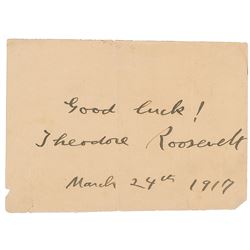 Good luck!
Theodore Roosevelt
March 24th 1917